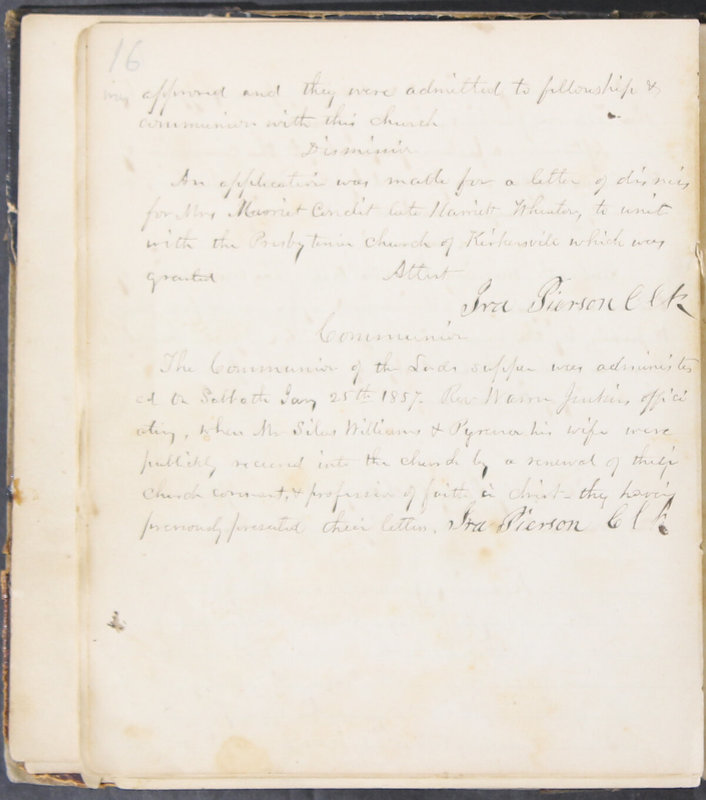 16
approved and they were admitted to fellowship &
communion with this church
Dismission
An application was made for a letter of dismis
for Mrs Harriet Condit late Harriet Wheaton, to unit
with the Presbyterian church of Kirkersvile which was
granted Attest
Ira Pierson Clk
Communion
The Communion of the Lords supper was administer
ed on Sabbath Jany 25th 1857. Rev Warren Jenkins offici
ating, when Mr Silas Williams & his wife were
publickly received into the church by a renewal of their
church covenant, & profession of faith in christ they having
previously presented their letters. Ira Pierson Clk